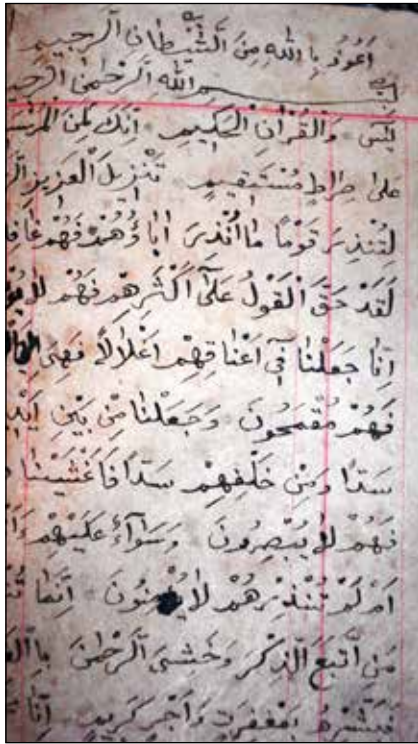 اَعُوذُ بِاللّٰهِ مِنَ الشَّيْطَانِ الرَّجِيمِ
بِسْمِ اللّٰهِ الرَّحْمٰنِ الرَّحِيمِ
يٰسٓ وَالْقُرْاٰنِ الْحَكِيمِ اِنَّكَ لَمِنَ الْمُرْسَ
عَلٰى صِرَاطٍ مُسْتَقِيمٍ تَنْزِيلَ الْعَزِيزِ
لِتُنْذِرَ قَوْمًا مَا اُنْذِرَ اٰبَاؤُهُمْ فَهُمْ غَافِ
لَقَدْ حَقَّ الْقَوْلُ عَلٰٓى اَكْثَرِهِمْ فَهُمْ لَا
اِنَّا جَعَلْنَا فِٓى اَعْنَاقِهِمْ اَغْلَالًا فَهِىَ
فَهُمْ مُقْمَحُونَ وَجَعَلْنَا مِنْ بَيْنِ اَيْدِ
سَدًّا وَمِنْ خَلْفِهِمْ سَدًّا فَاَغْشَيْنَا
فَهُمْ لَا يُبْصِرُونَ وَسَوَٓاءٌ عَلَيْهِمْ
اَمْ لَمْ تُنْذِرْهُمْ لَا يُؤْمِنُونَ اِنَّمَا
مَنِ اتَّبَعَ الذِّكْرَ وَخَشِىَ الرَّحْمٰنَ بِالْ
فَبَشِّرْهُ بِمَغْفِرَةٍ وَاَجْرٍ كَرِيمٍ اِنَّا